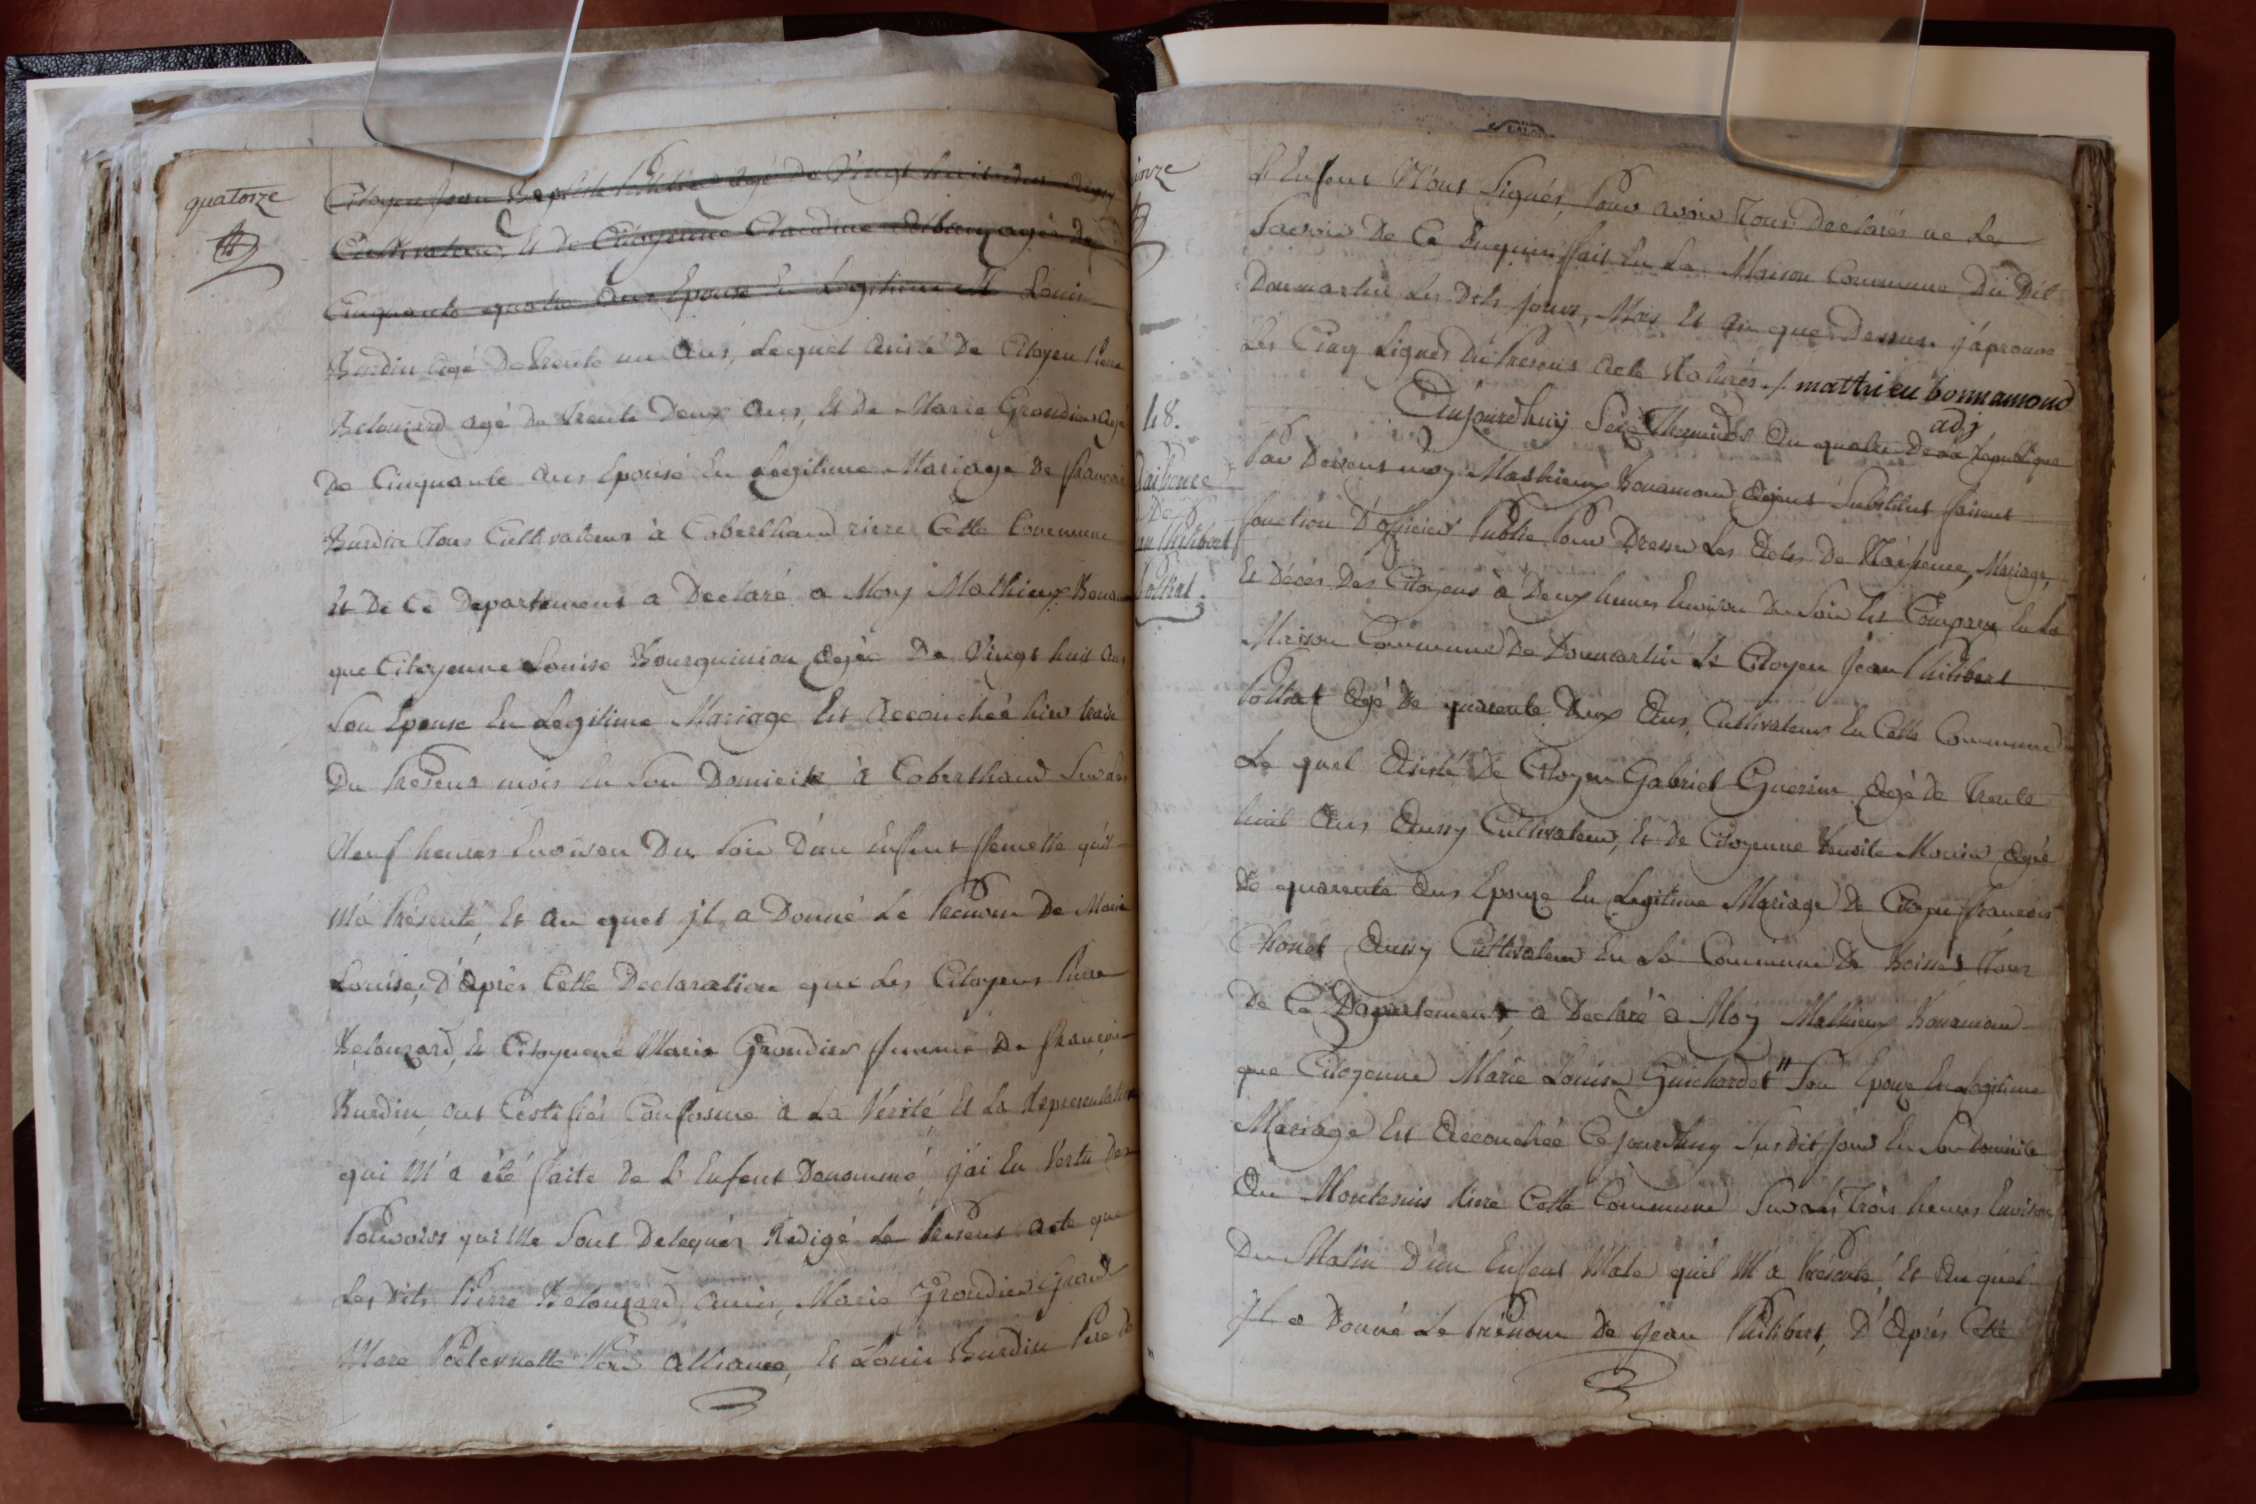 quatorze
Citoyen Jean Baptiste agé De Vingt huit ans aussy
Cultivateur, Et de Citoyenne Claudine agée De
Cinquante quatre ans Epouse En Legitime Louis
Burdin agé De trente un ans, Lequel assisté De Citoyen Pierre
Belouzard agé de trente Deux ans, Et De Marie Grondier agée
De Cinquante ans Epouse En Legitime Mariage De francois
Burdin Tous Cultivateurs à Coberthoud riere Cette Commune
Et De Ce Departement a Declaré a Moy Mathieux Bonam
que Citoyenne Louise Bourguinion agée De Vingt huit ans
Son Epouse En Legitime Mariage Est accouchée hier treize
Du Présent mois En Son Domicile à Coberthoud Sur Les
Neuf heures Environ Du Soir D'un Enfant femelle qu'il
M'a Présenté, Et au quel jl a Donné Le Prenom De Marie
Louise, D'après Cette Declaration que Les Citoyens Pierre
Belouzard, Et Citoyenne Marie Grondier femme De francois
Burdin, ont Certifiés Conforme a La Verité Et La Representation
qui M'a été faite de L'Enfant Denommé, j'ai En Vertu Des
Pouvoirs qui Me Sont Delegués Redigé Le Present acte que
Les Dits Pierre Belouzard, amis, Marie Grondier Grand
Mere Paternelle Par alliance, Et Louis Burdin Père de
inze
L'Enfant N'ont Signés, Pour avoir Tous Declarés ne Le
Scavoir De Ce Enquis, fait En La Maison Commune Du Dit
Donmartin Les Dits jour, Mois Et an que Dessus. j'aprouve
Les Cinq Lignes Du Present acte Raturés ./. matthieu bonnamond
adj
48.
Naissance
De
an Philibert
Poltrat.
Aujourd'huy Seize Thermidor an quatre De La Republique
Par Devant moy Mathieux Bonamond adjoint Substitut faisant
fonction D'officier Public Pour Dresser Les Actes De Naissence, Mariage,
Et Décés Des Citoyens à Deux heures Environ du Soir Est Comparu En La
Maison Commune De Donmartin Le Citoyen Jean Philibert
Poltrat agé De quarente Deux ans, Cultivateur En Cette Commune
Le quel assisté De Citoyen Gabriel Guerin agé de Trente
huit ans aussy Cultivateur, Et De Citoyenne Benoite Morin agée
De quarente ans Epouze En Legitime Mariage De Citoyen francois
Chonet aussy Cultivateur En La Commune De Boisset Tous
De Ce Departement, a Declaré à Moy Mathieux Bonamond
que Citoyenne Marie Louise Guichardet " Son Epouze En Legitime
Mariage Est Accouchée Cejourdhuy Susdit jour En Son Domicile
Au Montcruis riere Cette Commune Sur Les Trois heures Environ
Du Matin D'un Enfant Male quil M'a Présenté, Et Au quel
Jl a Donné Le Prénom De Jean Philibert, D'Après Cette